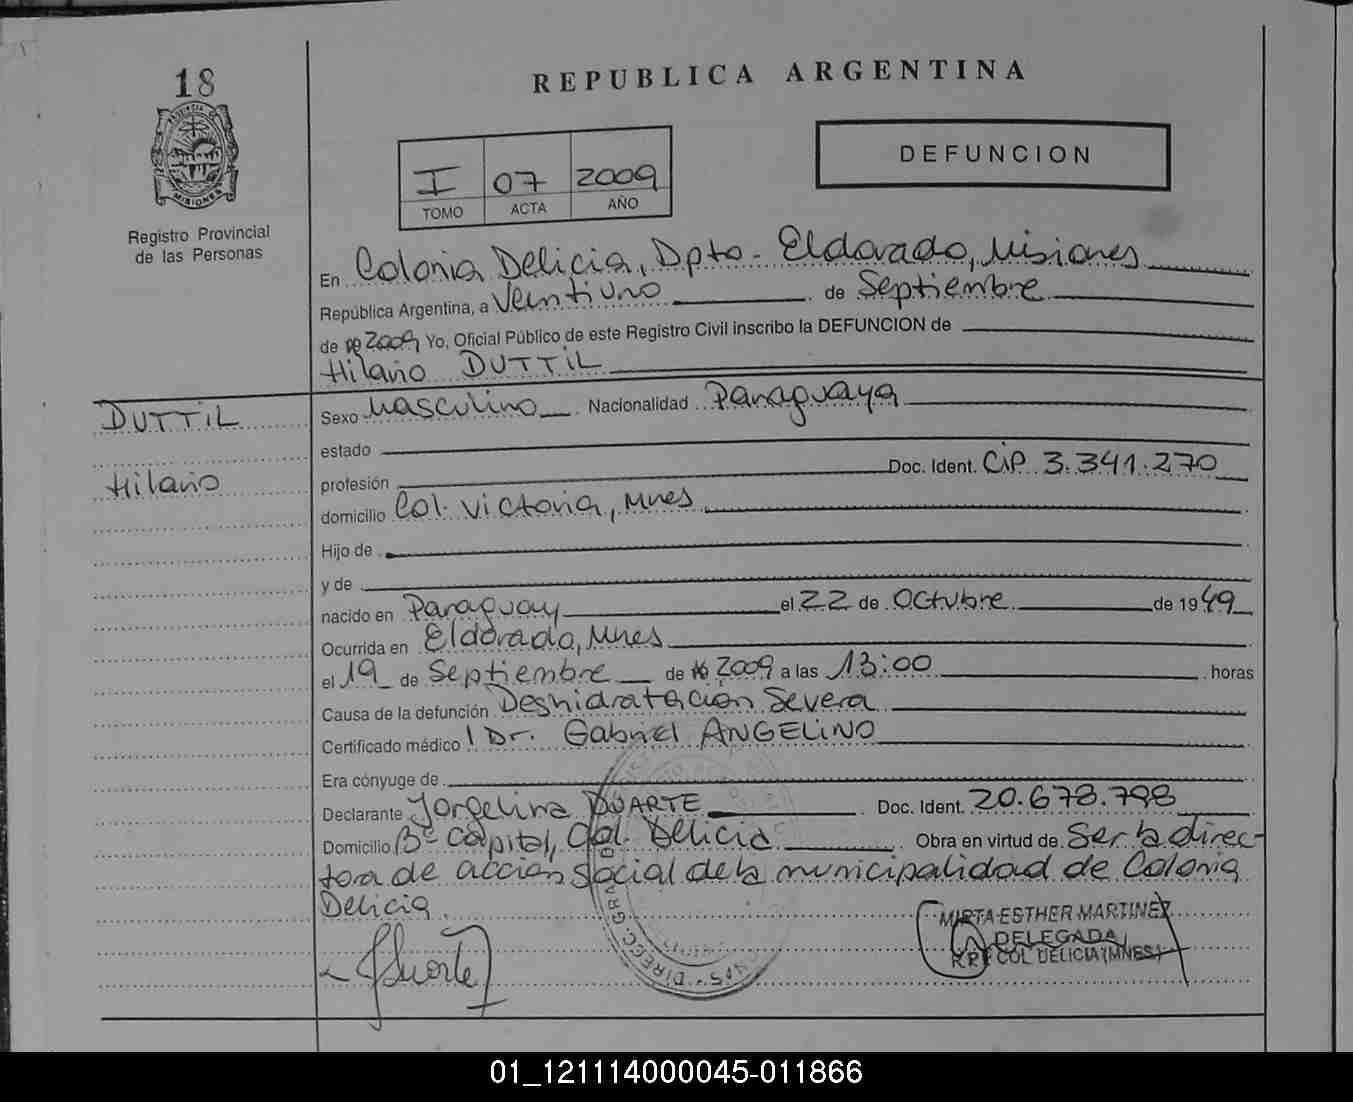 18
REPUBLICA ARGENTINA
PROVINCIA
MISIONES
Registro Provincial
de las Personas
I 07 2009
TOMO ACTA AÑO
DEFUNCION
En Colonia Delicia, Dpto - Eldorado, Misiones
República Argentina, a Veintiuno de Septiembre
de 2009 Yo, Oficial Público de este Registro Civil inscribo la DEFUNCION de
Hilario DUTTIL
DUTTIL
Hilario
Sexo Masculino Nacionalidad Paraguaya
estado
profesión Doc. Ident. CiP 3.341.270
domicilio Col. Victoria, Mnes
Hijo de
y de
nacido en Paraguay el 22 de Octubre de 1949
Ocurrida en Eldorado, Mnes
el 19 de Septiembre de 2009 a las 13:00 horas
Causa de la defunción Deshidratación Severa
Certificado médico Dr. Gabriel ANGELINO
Era cónyuge de
Declarante Jorgelina DUARTE Doc. Ident. 20.678.798
Domicilio Bº Capital, Col. Delicia Obra en virtud de Ser la direc-
tora de acción social de la municipalidad de Colonia
Delicia.
MIRTA ESTHER MARTINEZ
DELEGADA
R.P.P. COL DELICIA (MNES)
DIRECC. GRAL
01_121114000045-011866